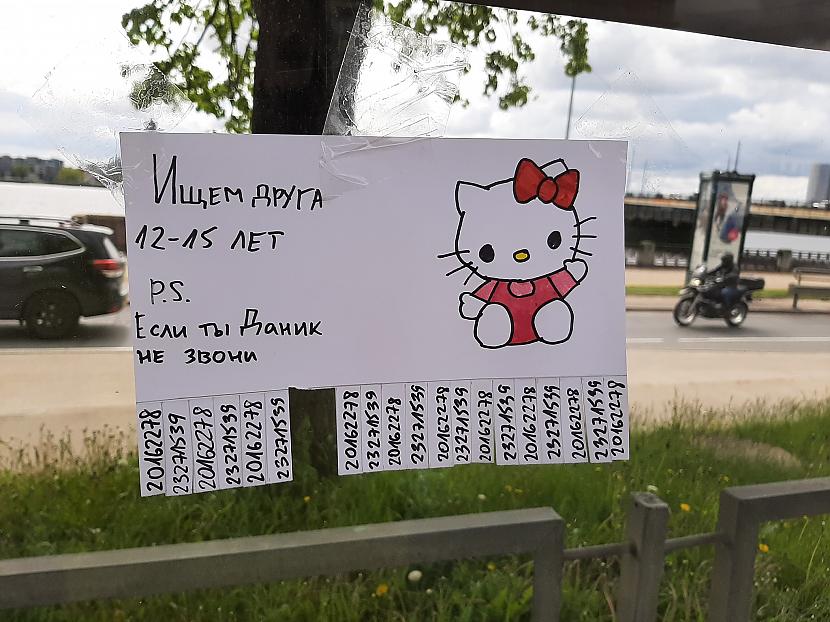 Ищем друга
12-15 лет
P.S.
Если ты Даник
не звони
20162278
23271539
20162278
23271539
20162278
23271539
20162278
23271539
20162278
23271539
20162278
23271539
20162278
23271539
20162278
23271539
20162278
23271539
20162278